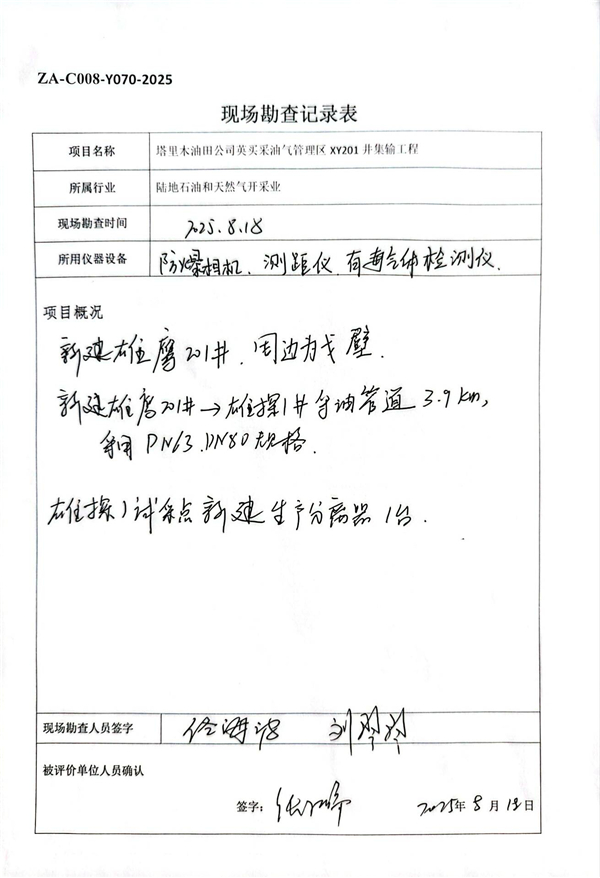 ZA-C008-Y070-2025
现场勘查记录表
项目名称 塔里木油田公司英买采油气管理区 XY201 井集输工程
所属行业 陆地石油和天然气开采业
现场勘查时间 2025.8.18
所用仪器设备 防爆相机、测距仪、有毒气体检测仪.
项目概况
新建雄鹰201井、周边为戈壁.
新建雄鹰201井→雄探1井 油管道 3.9km,
采用 PN63.DN80规格.
雄探1试采点新建生产分离器1台.
现场勘查人员签字
被评价单位人员确认
签字: 2025年 8 月 18 日